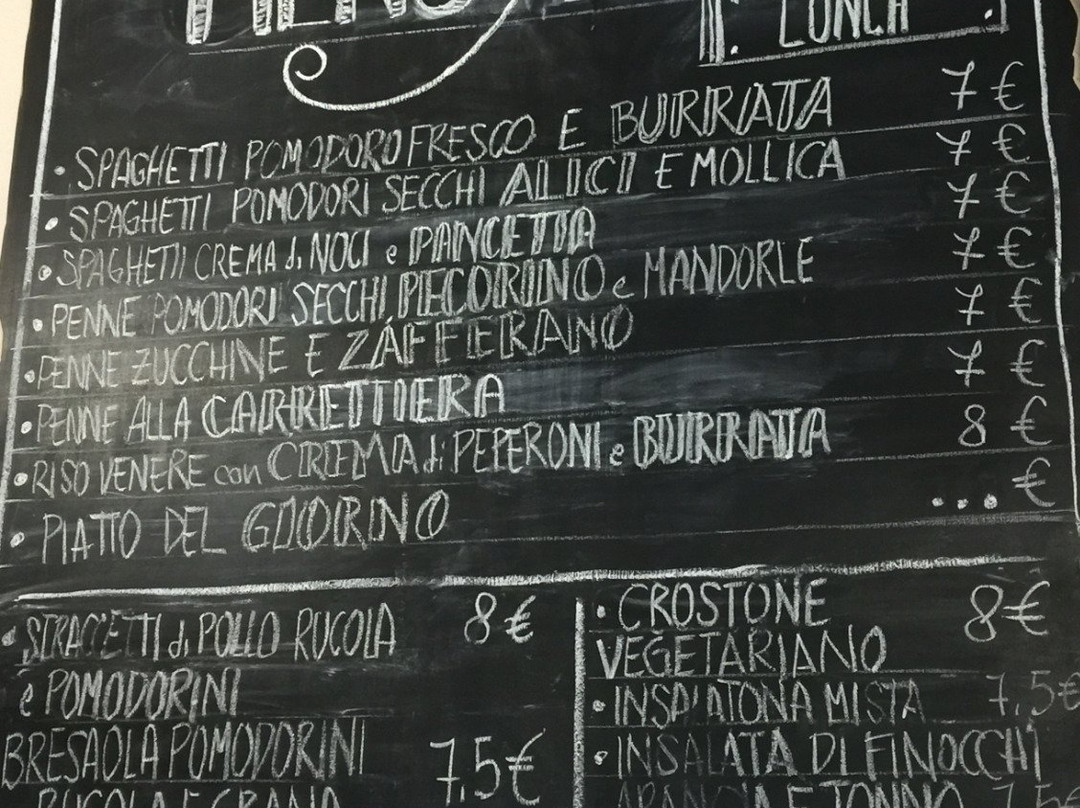 MENU
LUNCH
• SPAGHETTI POMODORO FRESCO E BURRATA 7 €
• SPAGHETTI POMODORI SECCHI ALICI E MOLLICA 7 €
• SPAGHETTI CREMA di NOCI e PANCETTA 7 €
• PENNE POMODORI SECCHI PECORINO e MANDORLE 7 €
• PENNE ZUCCHINE E ZAFFERANO 7 €
• PENNE ALLA CARRETTIERA 7 €
• RISO VENERE con CREMA di PEPERONI e BURRATA 8 €
• PIATTO DEL GIORNO ... €
• STRACCETTI di POLLO RUCOLA 8 €
e POMODORINI
BRESAOLA POMODORINI 7,5 €
RUCOLA E GRANA
• CROSTONE 8 €
VEGETARIANO
• INSALATONA MISTA 7,5 €
• INSALATA DI FINOCCHI
ARANCIA E TONNO 7,5 €